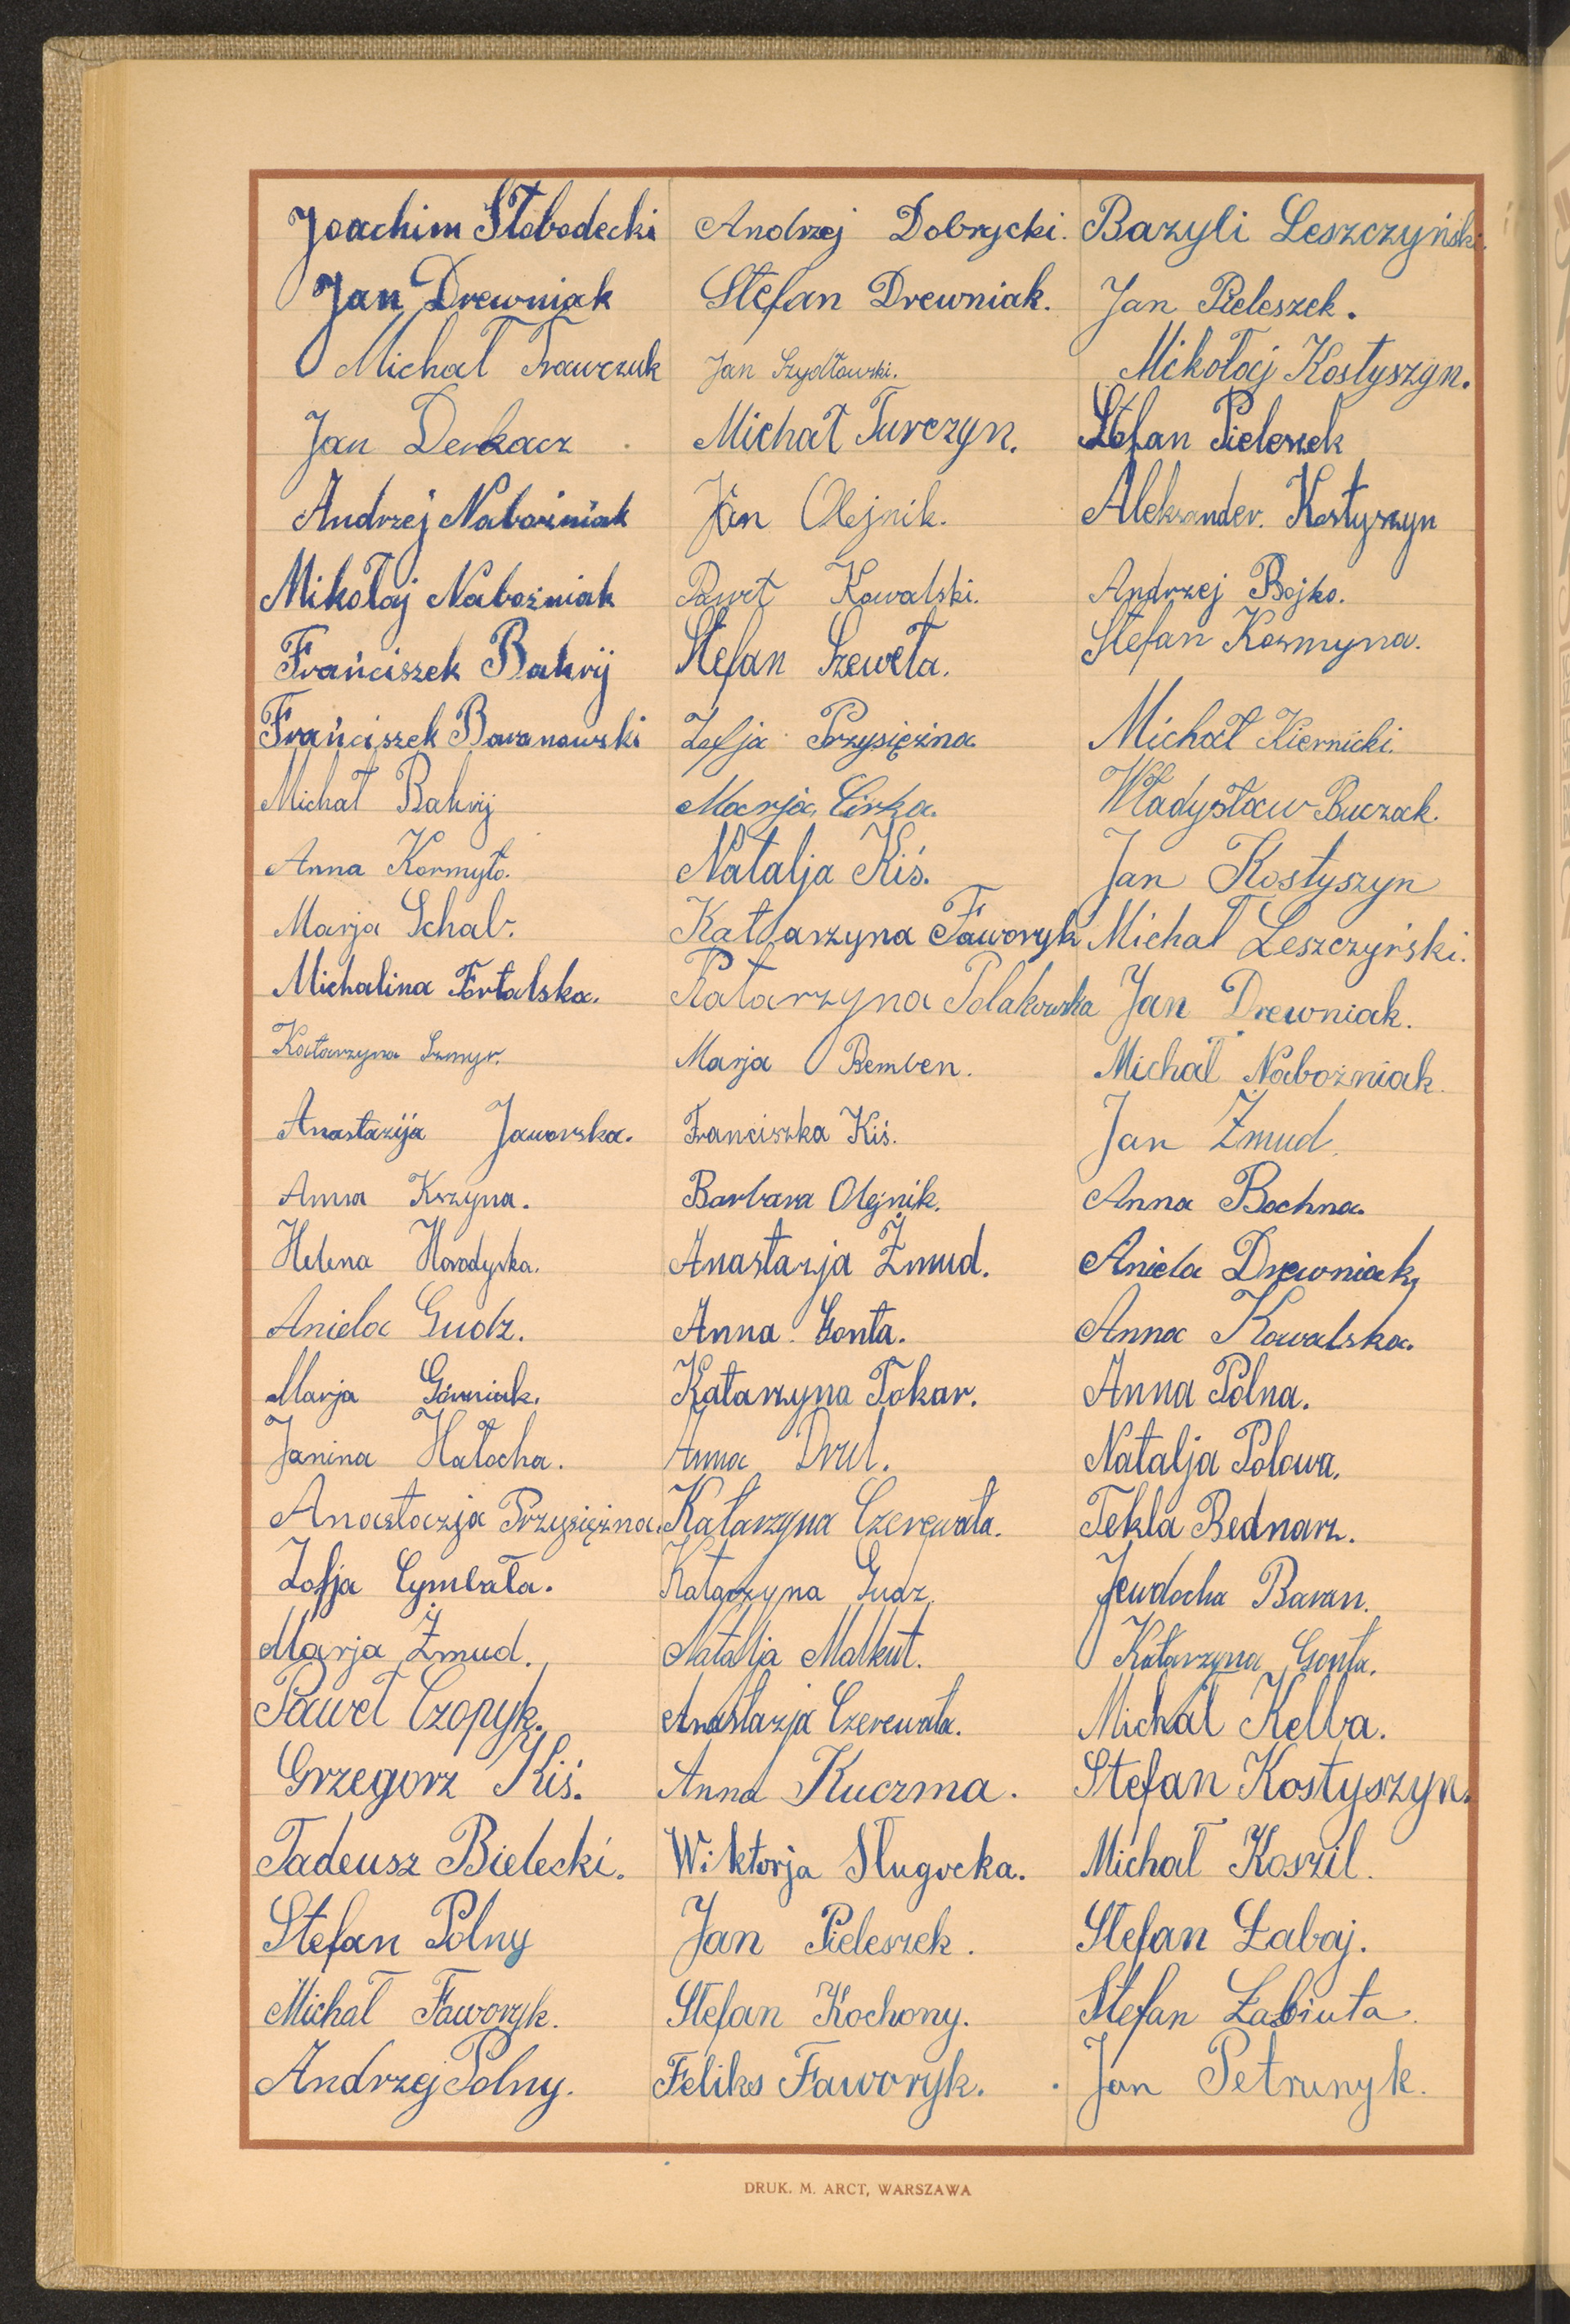 Joachim Słobodecki
Jan Drewniak
Michał Trawczuk
Jan Derkacz
Andrzej Nabożniak
Mikołaj Nabożniak
Franciszek Bakrij
Franciszek Baranowski
Michał Bakrij
Anna Kormyło.
Marja Schab.
Michalina Fortalska.
Katarzyna Szmyr.
Anastazija Jaworska.
Anna Krzyna.
Helena Horodyska.
Aniela Gudz.
Marja Górniak.
Janina Hałocha.
Anastazja Przysiężna.
Zofja Cymbała.
Marja Żmud.
Paweł Czopyk.
Grzegorz Kiś.
Tadeusz Bielecki.
Stefan Polny
Michał Faworyk.
Andrzej Polny.
Andrzej Dobrycki.
Stefan Drewniak.
Jan Szydłowski.
Michał Turczyn.
Jan Olejnik.
Paweł Kowalski.
Stefan Szeweła.
Zofja Przysiężna
Marja Cirka.
Natalja Kiś.
Katarzyna Faworyk
Katarzyna Polakowska
Marja Bemben.
Franciszka Kiś.
Barbara Olejnik.
Anastazja Żmud.
Anna Gonta.
Katarzyna Tokar.
Anna Drul.
Katarzyna Czerewata.
Katarzyna Gudz.
Natalja Malkut.
Anastazja Czerewata.
Anna Kuczma.
Wiktorja Sługocka.
Jan Pieleszek.
Stefan Kochony.
Feliks Faworyk.
Bazyli Leszczyński.
Jan Pieleszek.
Mikołaj Kostyszyn.
Stefan Pieleszek
Aleksander. Kostyszyn
Andrzej Bojko.
Stefan Kosmyna.
Michał Kiernicki.
Władysław Buczak.
Jan Kostyszyn
Michał Leszczyński.
Jan Drewniak.
Michał Nabożniak.
Jan Żmud.
Anna Bochna.
Aniela Drewniak,
Anna Kowalska.
Anna Polna.
Natalja Polowa.
Tekla Bednarz.
Jewdocha Baran.
Katarzyna Gonta.
Michał Kelba.
Stefan Kostyszyn.
Michał Koszil.
Stefan Łabaj.
Stefan Łabiuta.
Jan Petrunyk.
DRUK. M. ARCT, WARSZAWA